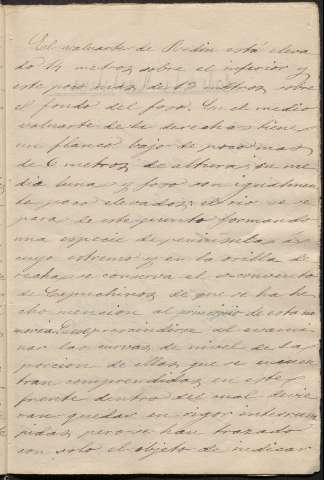 El valuarte de Redin está eleva
do 14 metros sobre el inferior y
este poco mas de 12 metros sobre
el fondo del foso. En el medio
valuarte de la derecha tiene
un flanco bajo de poco mas
de 6 metros de altura; su me
dia luna y foso son igualmen
te poco elevados; el rio se se
para de este punto formando
una especie de peninsula en
cuyo estremo y en la orilla de
recha se conserva el exconvento
de Capuchinos, de que se ha he
cho mencion al principio de esta me
moria. Se prescindirá del exami
nar las curvas de nivel de la
porcion de ellas que se encuen
tran comprendidas en este
frente dentro del cual debie
ran quedar en rigor interrum
pidas, pero se han trazado
con solo el objeto de indicar